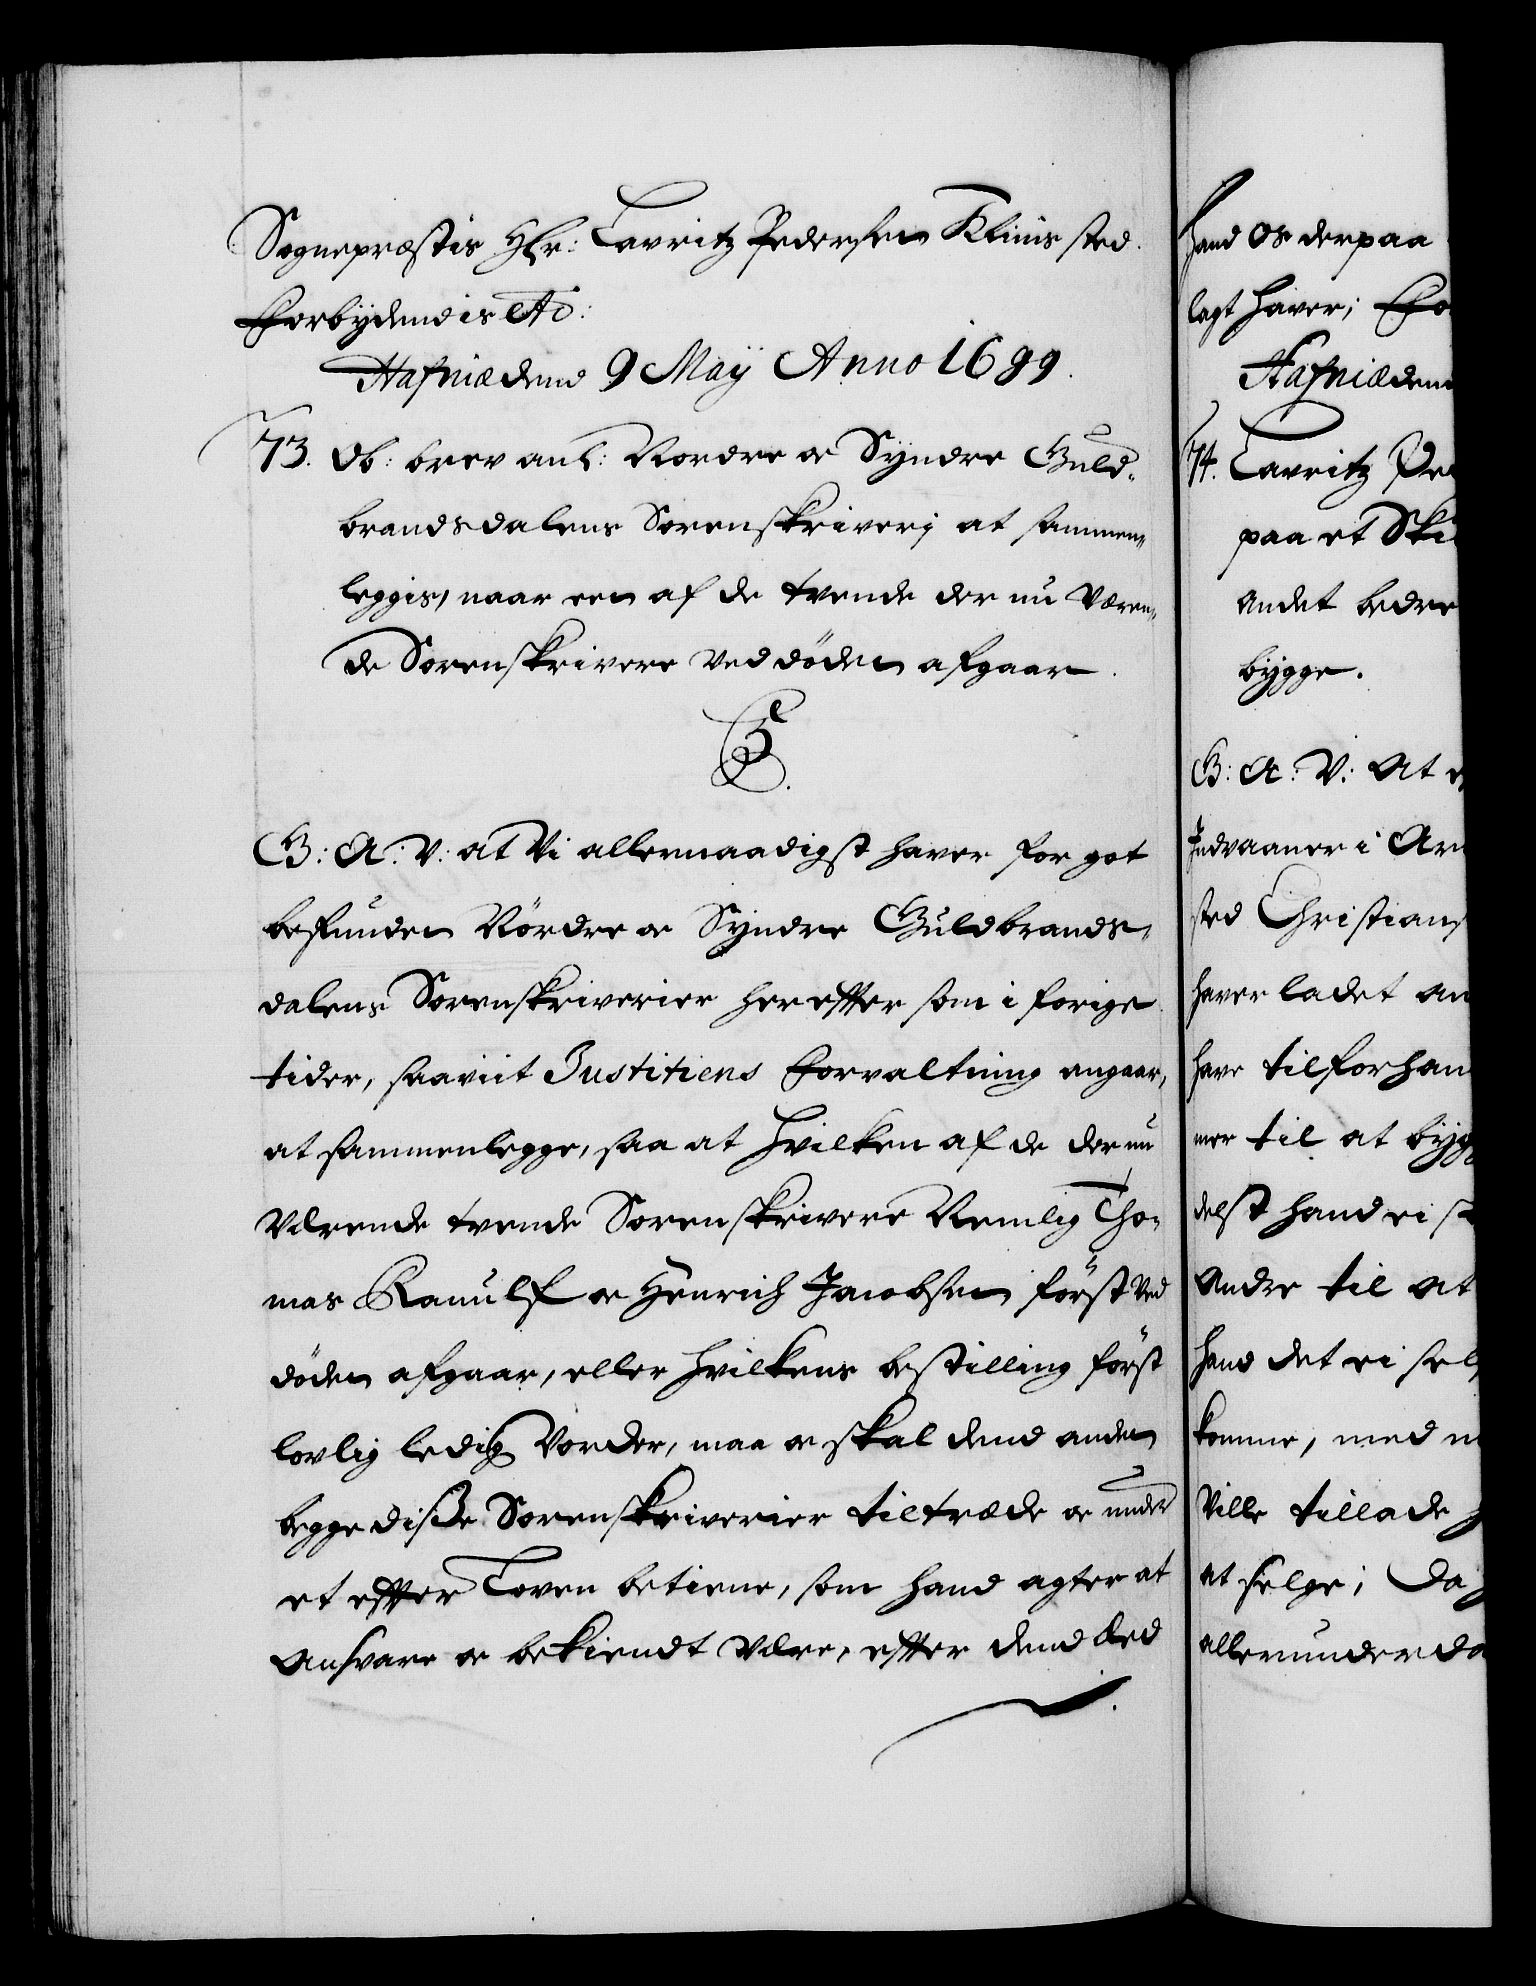 Sognepræstis Hr: Lavritz Pedersen Klinis sted.
Forbydendis etc:
Hafniæ dend 9 Maÿ Anno 1699.
73. Ob: brev anl: Nordre oc Syndre Guld-
brandsdalens Sorenskriverj at sammen-
leggis, naar een af de tvende der nu Væren-
de Sorenskrivere ved döden afgaar.
G: A: V: at Vi allernaadigst haver for got
befunden Nördre oc Syndre Guldbrands-
dalens Sorenskriverier her effter som i forige
tider, saaviit Justitiens Forvaltning angaar,
at sammenlegge, saa at hvilken af de der nu
Værende tvende Sorenskrivere Nemlig Tho-
mas Ranulf oc Henrich Jacobsen först ved
döden afgaar, eller hvilkens bestilling först
lovlig ledig Vorder, maa oc skal dend anden
begge diße Sorenskriverier tiltræde oc under
et effter Loven betiene, som hand agter at
Ansvare oc bekiendt Være, effter dend Eed
hand Os derpaa
lagt haver; Fo
Hafniæ dend
74. Lavritz Pe
paa et Ski
andet bedre
bÿgge.
G: A: V: At e
Indvaaner i Ar
sted Christians
haver ladet an
have tilforhan
mer til at bÿg
delst hand ei s
Andre til at
hand det ei sel
komme, med
Ville tillade
at selge; Da
allerunderda